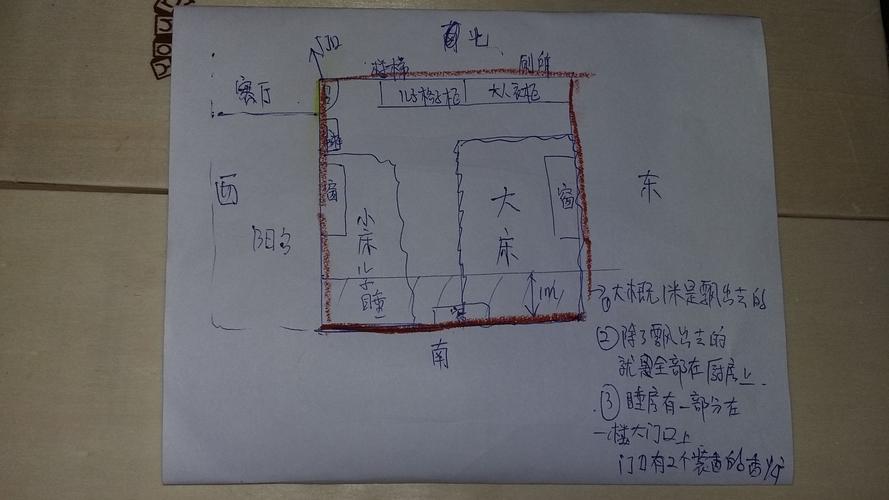 北
门口
楼梯
厕所
客厅
儿子柜
大人衣柜
西
窗
小床儿子睡
大床
窗
东
阳台
1m
南
①大概1米是飘出去的
②除了飘出去的
就是全部在厨房上.
③睡房有一部分在
一楼大门口上
门口有2个装香的香炉